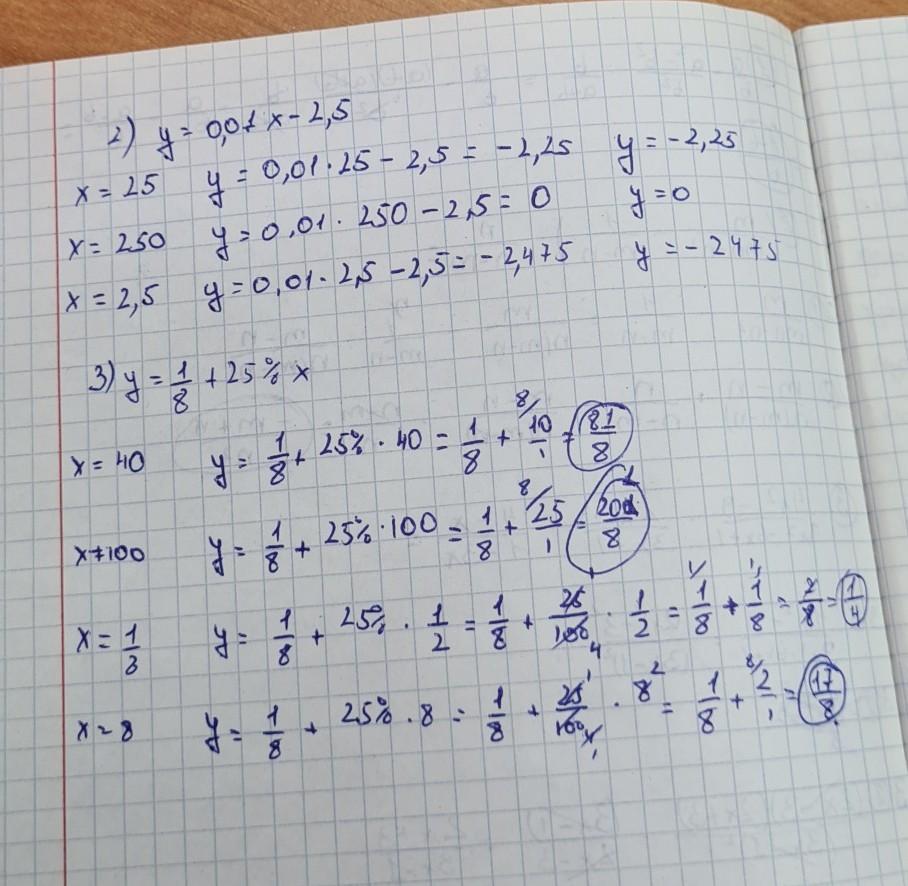 2) y = 0,01x - 2,5
x = 25 y = 0,01 · 25 - 2,5 = -2,25 y = -2,25
x = 250 y = 0,01 · 250 - 2,5 = 0 y = 0
x = 2,5 y = 0,01 · 2,5 - 2,5 = -2,475 y = -2475
3) y = 1/8 + 25% x
x = 40 y = 1/8 + 25% · 40 = 1/8 + 8/ 10/1 = 81/8
x = 100 y = 1/8 + 25% · 100 = 1/8 + 8/ 25/1 = 201/8
x = 1/3 y = 1/8 + 25% · 1/2 = 1/8 + 25/100 1 4 · 1/2 = 1/ 1/8 + 1/ 1/8 = 2/8 = 1/4
x = 8 y = 1/8 + 25% · 8 = 1/8 + 25/100 1 4 1 · 8 2 = 1/8 + 8/ 2/1 = 17/8